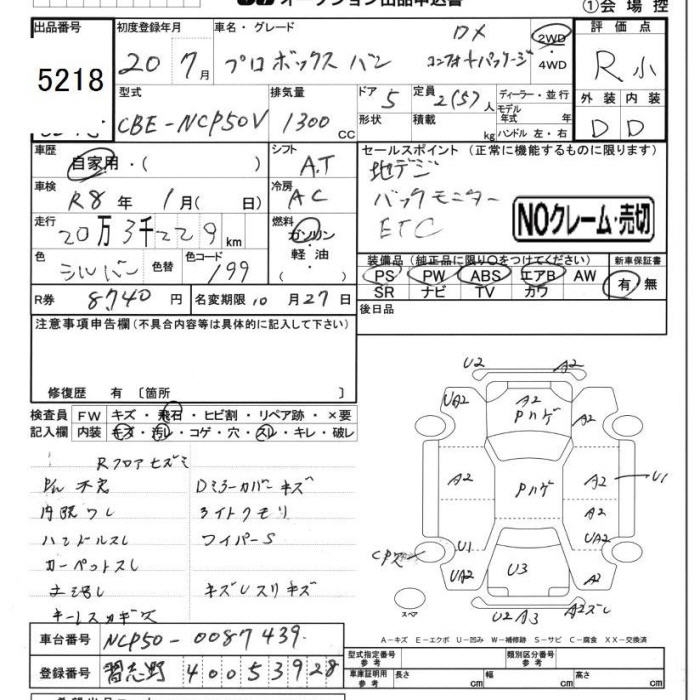 オークション出品申込書
①会場控
出品番号
5218
初度登録年月
20 7月
車名・グレード
DX
プロボックス バン コンフォートパッケージ
2WD
・
4WD
評価点
R 小
型式
CBE-NCP50V
排気量
1300 CC
ドア 5
形状
定員 2(5)人
積載 kg
ディーラー・並行
モデル
年式 年
ハンドル 左・右
外装 内装
D D
車歴
自家用・( )
シフト
A.T
車検
R8年 1月( 日)
冷房
AC
走行
20万3千229km
燃料
ガソリン
軽油
・( )
色
シルバー
色替
色コード
199
R券 8740円
名変期限 10月27日
セールスポイント(正常に機能するものに限ります)
地デジ
バックモニター
ETC
NOクレーム・売切
装備品(純正品に限り○をつけてください)
PS PW ABS エアB AW
SR ナビ TV カワ
新車保証書
有・無
後日品
注意事項申告欄(不具合内容等は具体的に記入して下さい)
修復歴 有〔箇所 〕
検査員 FW キズ・飛石・ヒビ割・リペア跡・×要
記入欄 内装 キズ・汚レ・コゲ・穴・スレ・キレ・破レ
Rフロアヒズミ
Dミラーカバーキズ
内張ワレ
ライトクモリ
ハンドルスレ
ワイパーS
カーペットスレ
キズUスリキズ
U2 A2
UA2 A2 A2
Pハゲ
A2 Pハゲ A2 U1
A2
U1 UA2
UA2 U3 A2
スペア
U2A3 A2ズレ
A−キズ E−エクボ U−凹み W−補修跡 S−サビ C−腐食 XX−交換済
車台番号 NCP50-0087439
登録番号 習志野 400 そ 3928
型式指定番号
参考
類別区分番号
参考
車庫証明用
参考
長さ cm
幅 cm
高さ cm